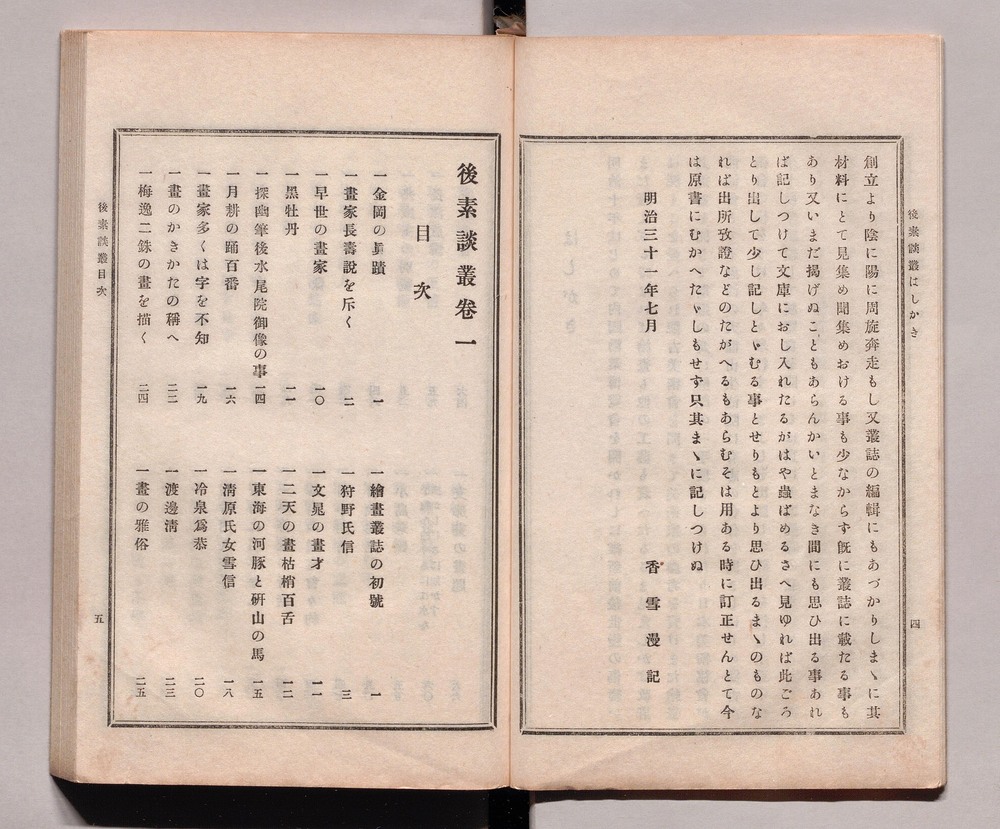 後素談叢はしかき
創立より陰に陽に周旋奔走もし又叢誌の編輯にもあづかりしまゝに其
材料にとて見集め聞集めおける事も少なからす旣に叢誌に載たる事も
あり又いまだ揭げぬこともあらんかいとまなき間にも思ひ出る事あれ
ば記しつけて文庫におし入れたるがはや蟲ばめるさへ見ゆれば此ごろ
とり出して少し記しとゞむる事とせりもとより思ひ出るまゝのものな
れば出所攷證などのたがへるもあらむそは用ある時に訂正せんとて今
は原書にむかへたゞしもせず只其まゝに記しつけぬ
明治三十一年七月
香雪漫記
四
後素談叢卷一
目次
一金岡の眞蹟 一
一畫家長壽說を斥く 二
一早世の畫家 一〇
一黑牡丹 一一
一探幽筆後水尾院御像の事 一四
一月耕の踊百番 一六
一畫家多くは字を不知 一九
一畫のかきかたの稱へ 二二
一梅逸二銖の畫を描く 二四
一繪畫叢誌の初號 一
一狩野氏信 三
一文晁の畫才 一一
一二天の畫枯梢百舌 一二
一東海の河豚と硏山の馬 一五
一淸原氏女雪信 一八
一冷泉爲恭 二〇
一渡邊淸 二三
一畫の雅俗 二五
後素談叢目次
五